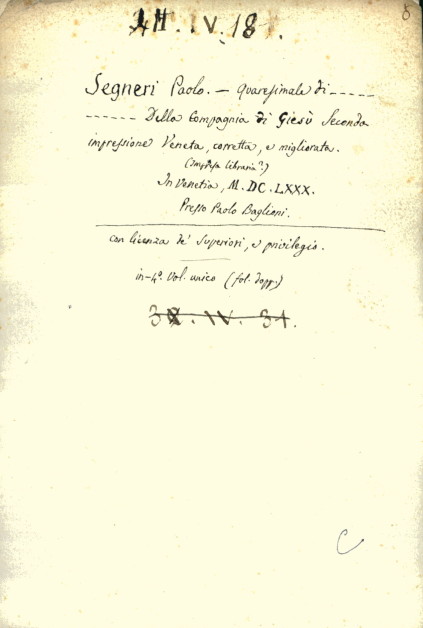 6
IV. 18.
Segneri Paolo. — Quaresimale di -----
------ Della Compagnia di Giesù Seconda
impressione Veneta, corretta, e migliorata.
(Impresa libraria?)
In Venetia, M.DC.LXXX.
Presso Paolo Baglioni.
con licenza de' Superiori, e privilegio.
in-4º. Vol. unico (fol. dopp.)
IV. 31.
C